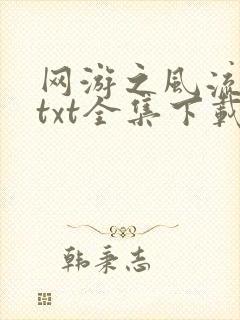 网游之风流
txt全集下载
韩秉志